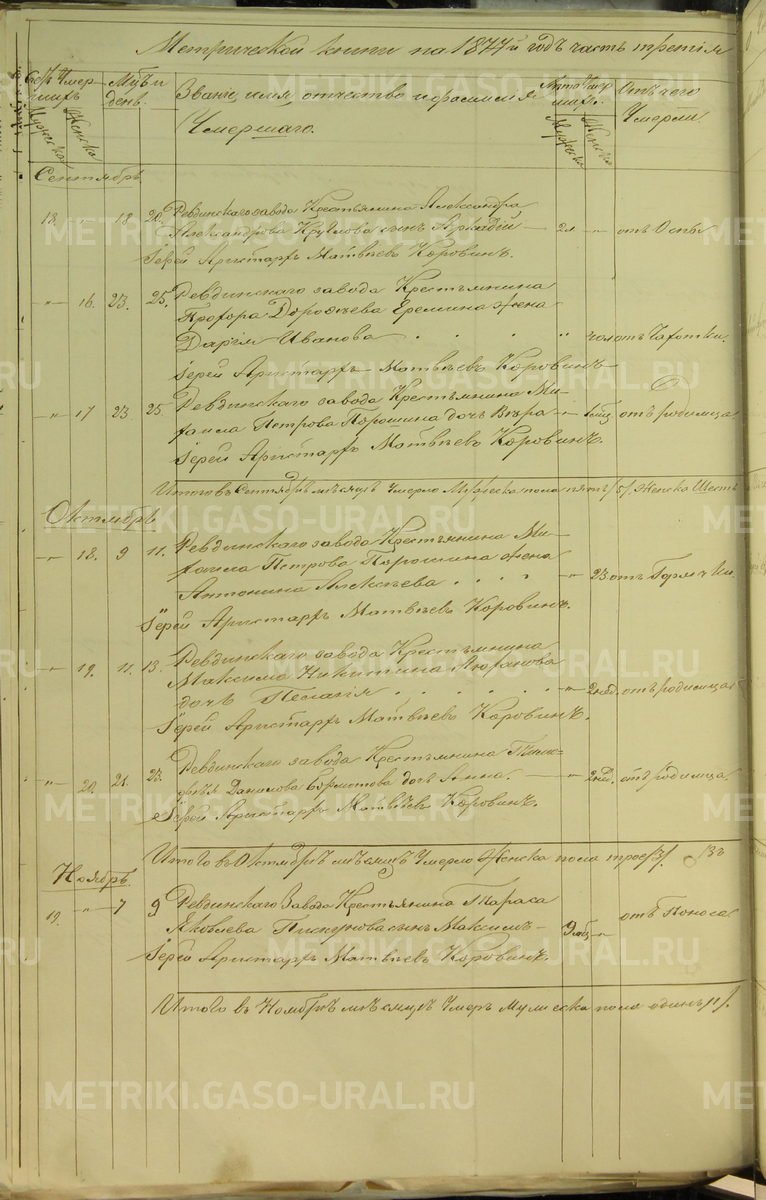 Метрической книги на 1877й годъ часть третiя
Счетъ Умершихъ
Мужска
Женска
Мѣц. и день.
Званiе, имя, отчество и фамилiя Умершаго.
Лѣта Умершихъ
Мужска
Женска
Отъ чего Умерли
Сентябрь
18. " 18 20. Ревдинскаго завода Крестьянина Александра
Александрова Круглова сынъ Аркадiй — 2л " отъ Оспы
Iерей Аристархъ Матвѣевъ Коровинъ.
" 16. 23. 25. Ревдинскаго завода Крестьянина
Прохора Дорофеева Еремина жена
Дарiя Иванова " отъ Чахотки.
Iерей Аристархъ Матвѣевъ Коровинъ
" 17 23 25. Ревдинскаго завода Крестьянина Ми-
хаила Петрова Порошина дочь Вѣра " 1мц отъ родимца
Iерей Аристархъ Матвѣевъ Коровинъ.
Итого въ Сентябрѣ мѣсяцѣ Умерло Мужеска пола пять /5/, Женска Шесть
Октябрь
" 18. 9 11. Ревдинскаго завода Крестьянина Ми-
хаила Петрова Порошина жена
Антонина Алексѣева " 23. отъ Горячки.
Iерей Аристархъ Матвѣевъ Коровинъ.
" 19. 11. 13. Ревдинскаго завода Крестьянина
Максима Никитина
дочь Пелагiя " 2нед. отъ родимца
Iерей Аристархъ Матвѣевъ Коровинъ.
" 20. 21. 23. Ревдинскаго завода Крестьянина
Данилова дочь Анна. " 2нед. отъ родимца
Iерей Аристархъ Матвѣевъ Коровинъ.
Итого въ Октябрѣ мѣсяцѣ Умерло Женска пола трое /3/.
Ноябрь.
19. " 7 9 Ревдинскаго Завода Крестьянина Тараса
Яковлева Пискунова сынъ Максимъ — 9мц " отъ Поноса
Iерей Аристархъ Матвѣевъ Коровинъ.
Итого въ Ноябрѣ мѣсяцѣ Умеръ Мужеска пола одинъ /1/.
METRIKI.GASO-URAL.RU